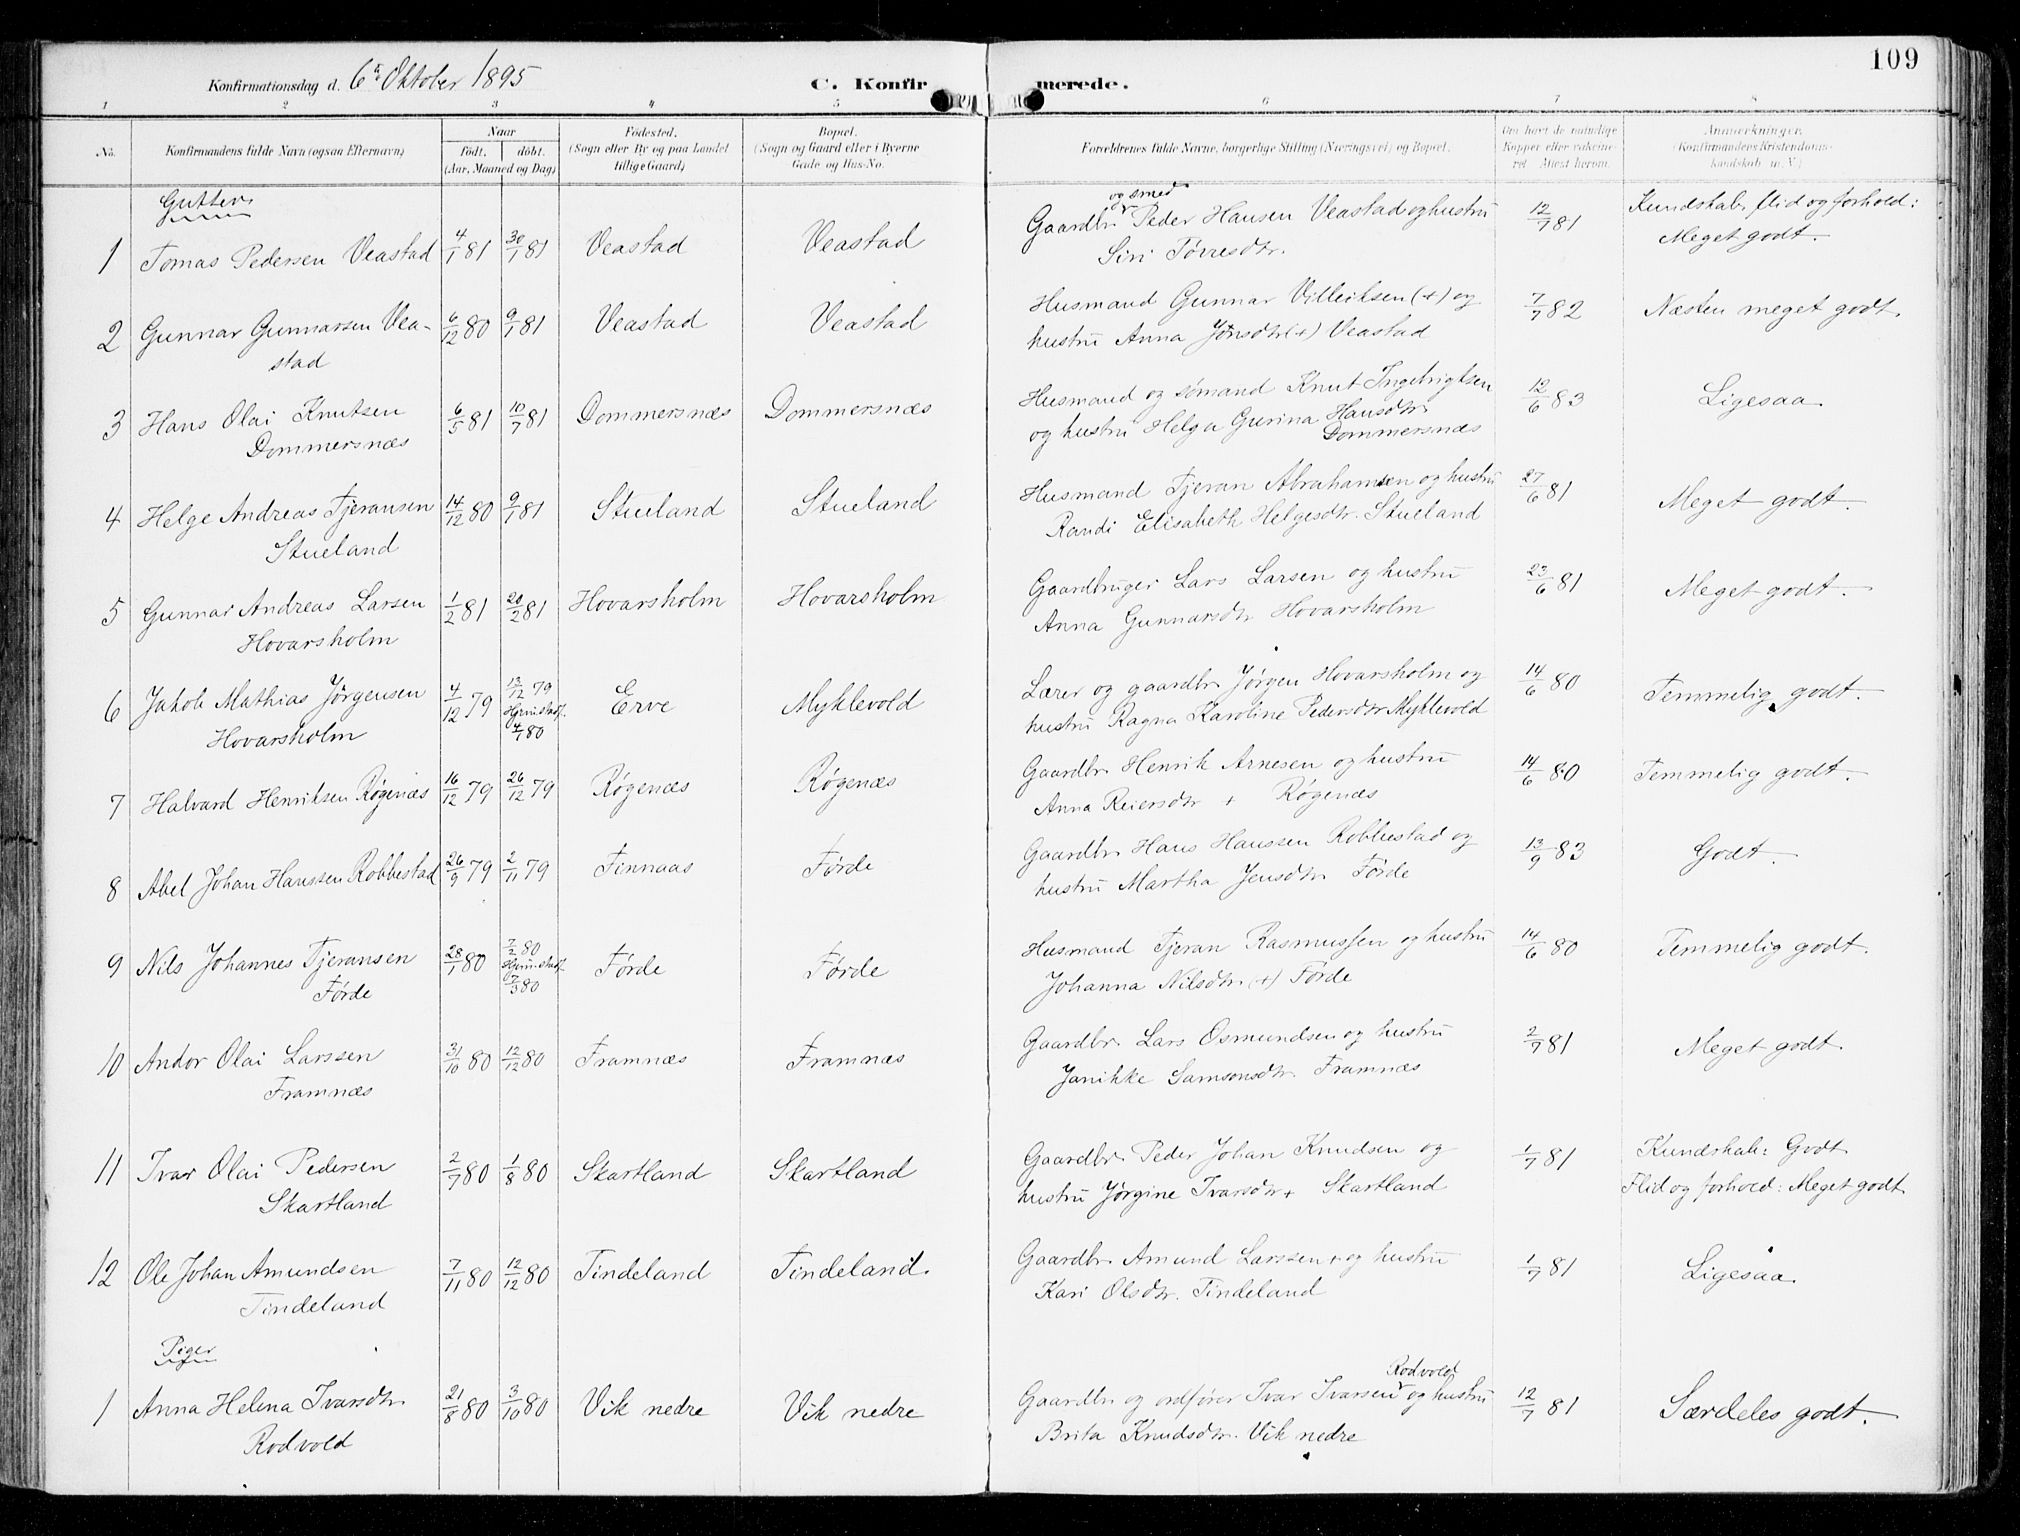 109
Konfirmationsdag d. 6te Oktober 1895
C. Konfirmerede.
1 2 3 4 5 6 7 8
No. Konfirmandens fulde Navn (ogsaa Efternavn) Naar Født. døbt. (Aar, Maaned og Dag) Fødested. (Sogn eller By og paa Landet tillige Gaard) Bopæl. (Sogn og Gaard eller i Byerne Gade og Hus-No. Forældrenes fulde Navne, borgerlige Stilling (Næringsvei) og Bopæl. Om havt de naturlige Kopper eller vaccineret. Attest herom. Anmerkninger. (Konfirmandens Kristendomskundskab m. V.)
Gutter
1 Tomas Pedersen Veastad 4/1 81 30/1 81 Veastad Veastad Gaardbr. og smed Peder Hansen Veastad og hustru 12/7 81 Kundskab, flid og forhold:
Siri Tørresdtr. Meget godt.
2 Gunnar Gunnarsen Vea- 6/12 80 9/1 81 Veastad Veastad Husmand Gunnar Villeiksen (+) og 7/7 82 Næsten meget godt.
stad hustru Anna Jønsdtr (+) Veastad
3 Hans Olai Knutsen 6/5 81 10/7 81 Dommersnæs Dommersnæs Husmand og sømand Knut Ingebrigtsen 12/6 83 Ligesaa
Dommersnæs og hustru Helga Gurina Hansdtr. Dommersnæs
4 Helge Andreas Tjeransen 14/12 80 9/1 81 Stueland Stueland Husmand Tjeran Abrahamsen og hustru 27/6 81 Meget godt.
Stueland Randi Elisabeth Helgesdtr. Stueland
5 Gunnar Andreas Larsen 1/2 81 20/2 81 Hovarsholm Hovarsholm Gaardbruger Lars Larsen og hustru 23/6 81 Meget godt.
Hovarsholm Anna Gunnarsdtr Hovarsholm
6 Jakob Mathias Jørgensen 4/12 79 13/12 79 Hjemstadf. 4/1 80 Erve Myklevold Lærer og gaardbr. Jørgen Hovarsholm og 14/6 80 Temmelig godt.
Hovarsholm hustru Ragna Karoline Pedersdtr Myklevold
7 Halvard Henriksen Røgenæs 16/12 79 26/12 79 Røgenæs Røgenæs Gaardbr. Henrik Arnesen og hustru 14/6 80 Temmelig godt.
Anna Reiersdtr + Røgenæs
8 Abel Johan Hanssen Robbestad 26/9 79 2/11 79 Finnaas Førde Gaardbr. Hans Hanssen Robbestad og 13/9 83 Godt.
hustru Martha Jensdtr. Førde
9 Nils Johannes Tjeransen 28/1 80 7/2 80 Hjemstadf. 7/3 80 Førde Førde Husmand Tjeran Rasmussen og hustru 14/6 80 Temmelig godt.
Førde Johanna Nilsdtr. (+) Førde
10 Andor Olai Larssen 31/10 80 12/12 80 Framnæs Framnæs Gaardbr. Lars Osmundsen og hustru 2/7 81 Meget godt.
Framnæs Janikke Samsonsdtr. Framnæs
11 Ivar Olai Pedersen 2/7 80 1/8 80 Skartland Skartland Gaardbr. Peder Johan Knudsen og 1/7 81 Kundskab: Godt
Skartland hustru Jørgine Ivarsdtr + Skartland Flid og forhold: Meget godt
12 Ole Johan Amundsen 7/11 80 12/12 80 Tindeland Tindeland Gaardbr. Amund Larssen + og hustru 1/7 81 Ligesaa
Tindeland Kari Olsdtr. Tindeland
Piger
1 Anna Helena Ivarsdtr 21/8 80 3/10 80 Vik nedre Vik nedre Gaardbr og ordfører Ivar Ivarsen Rodvold og hustru 12/7 81 Særdeles godt.
Rodvold Brita Knudsdtr. Vik nedre